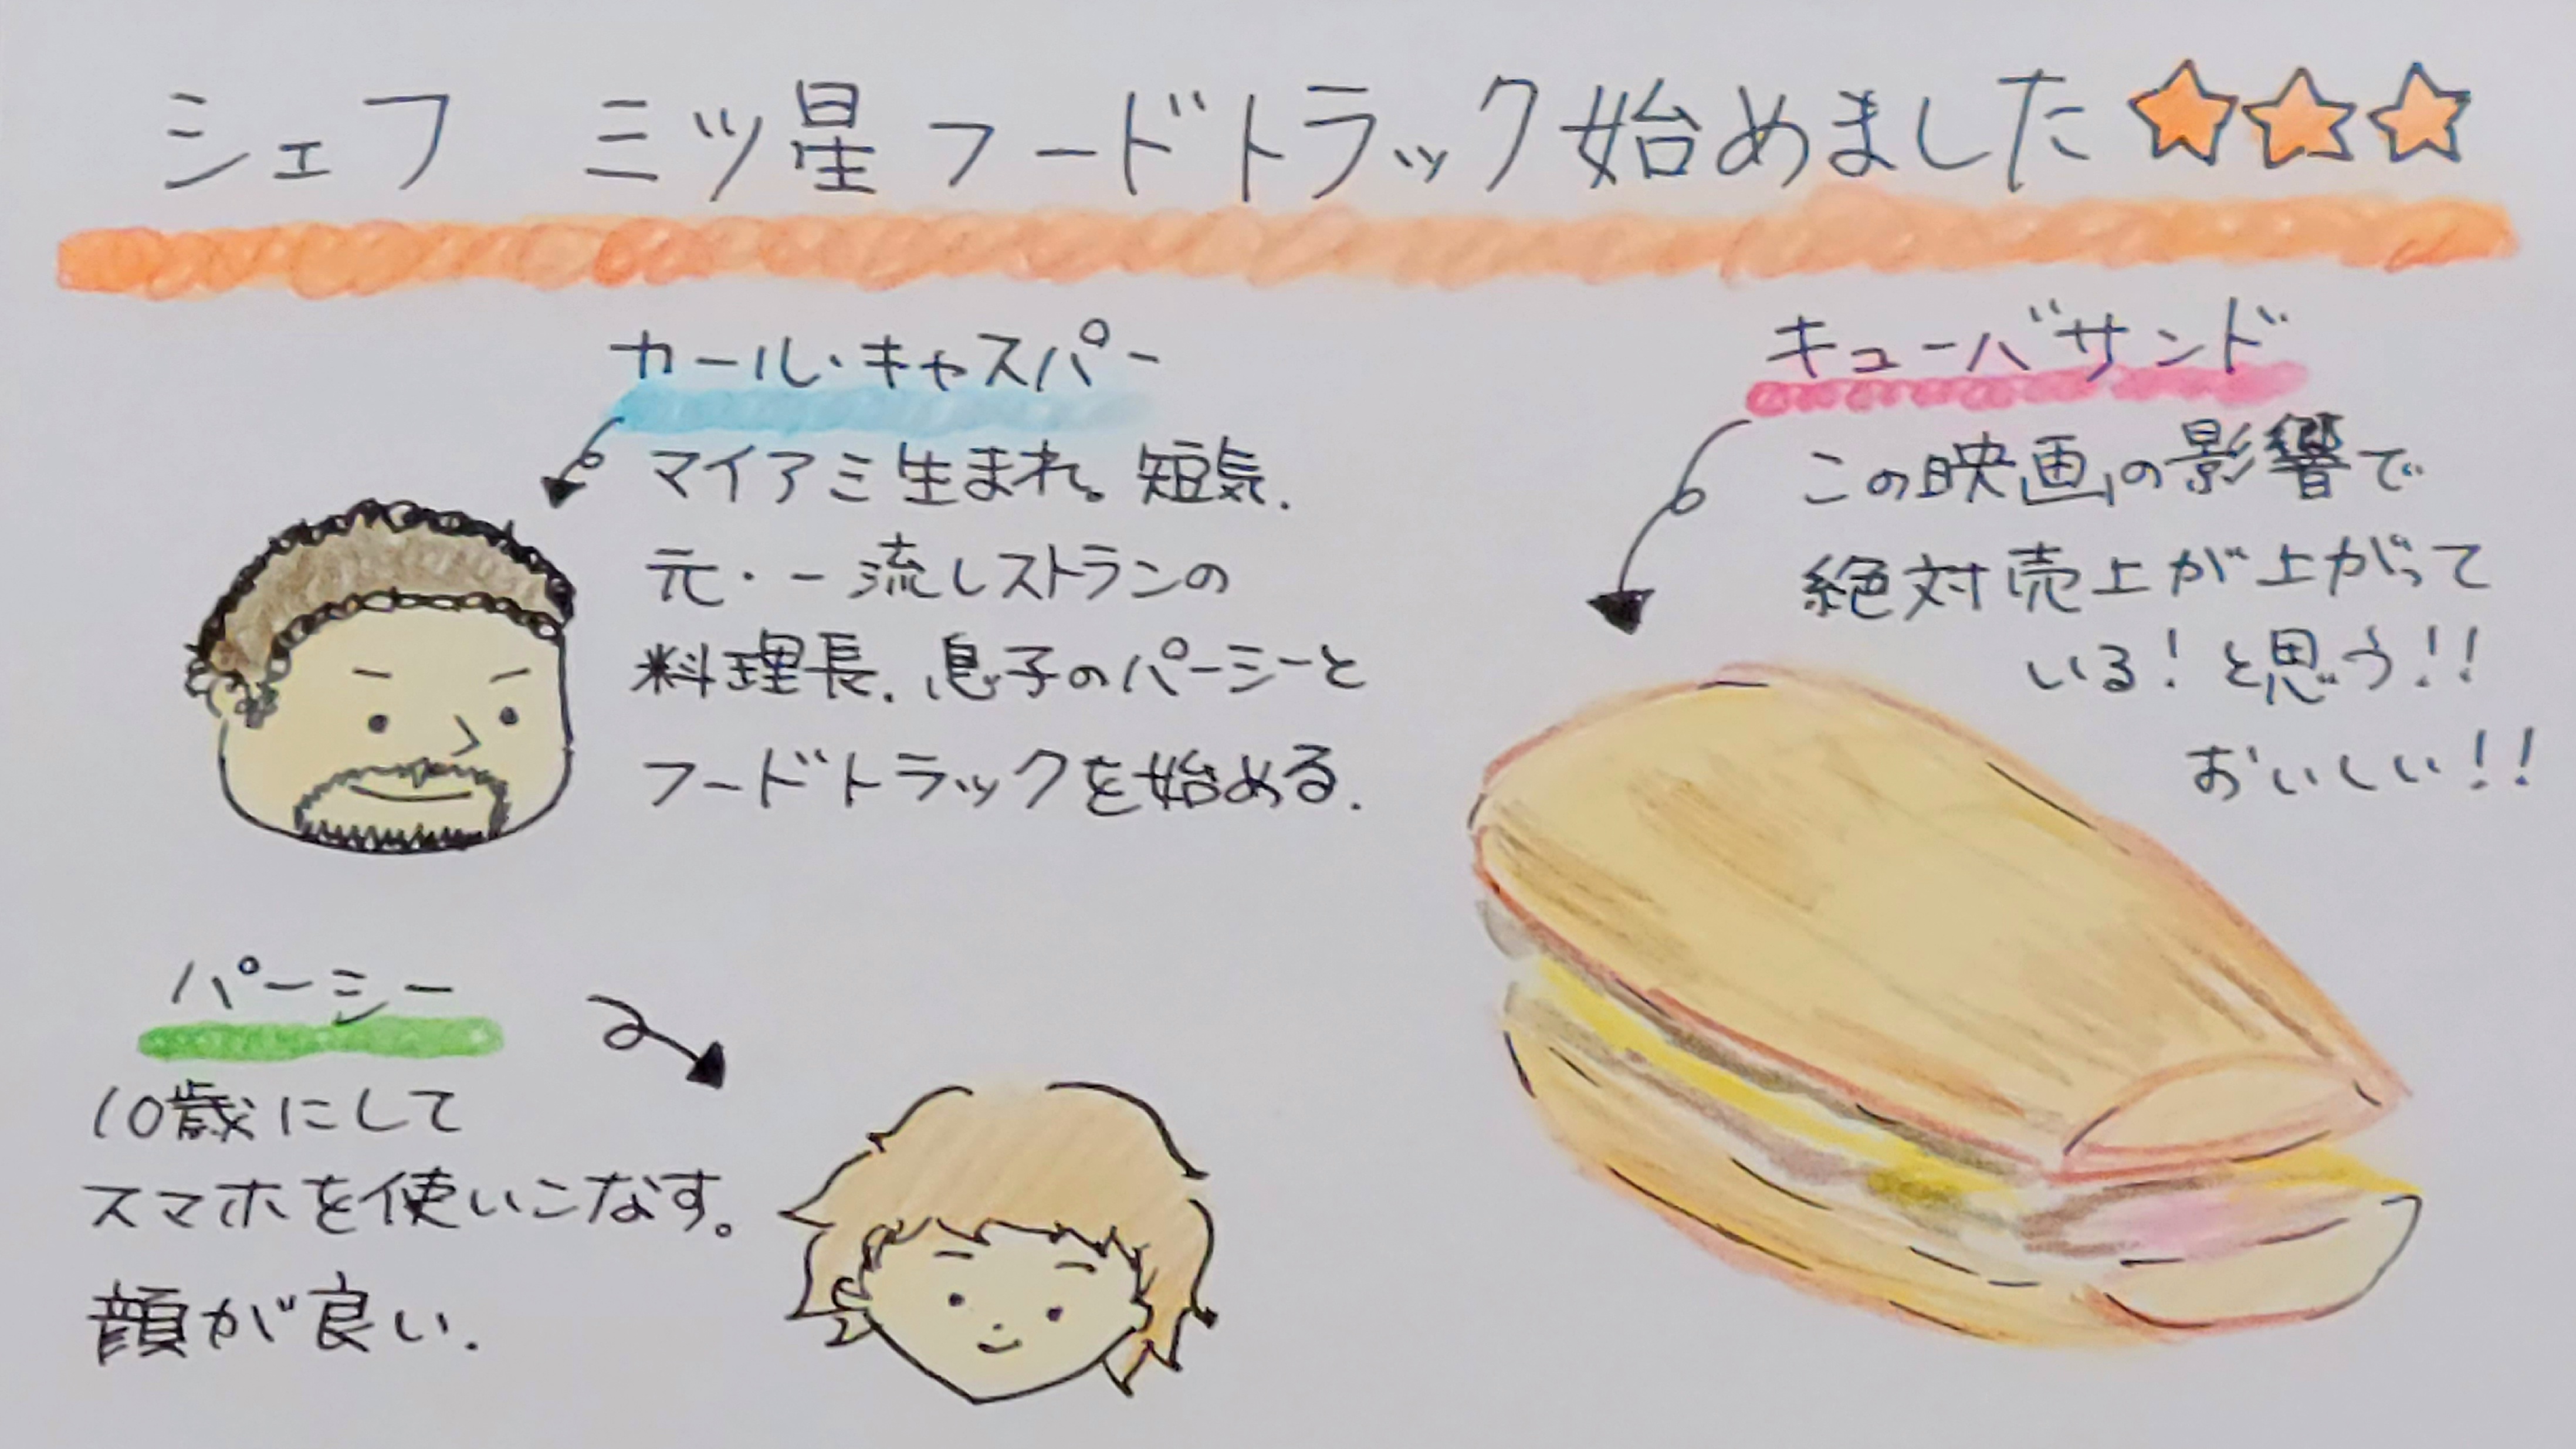 シェフ 三ツ星フードトラック始めました☆☆☆
カール・キャスパー
マイアミ生まれ。短気.
元・一流レストランの
料理長.息子のパーシーと
フードトラックを始める.
キューバサンド
この映画の影響で
絶対売上が上がって
いる!と思う!!
おいしい!!
パーシー
10歳にして
スマホを使いこなす。
顔が良い.